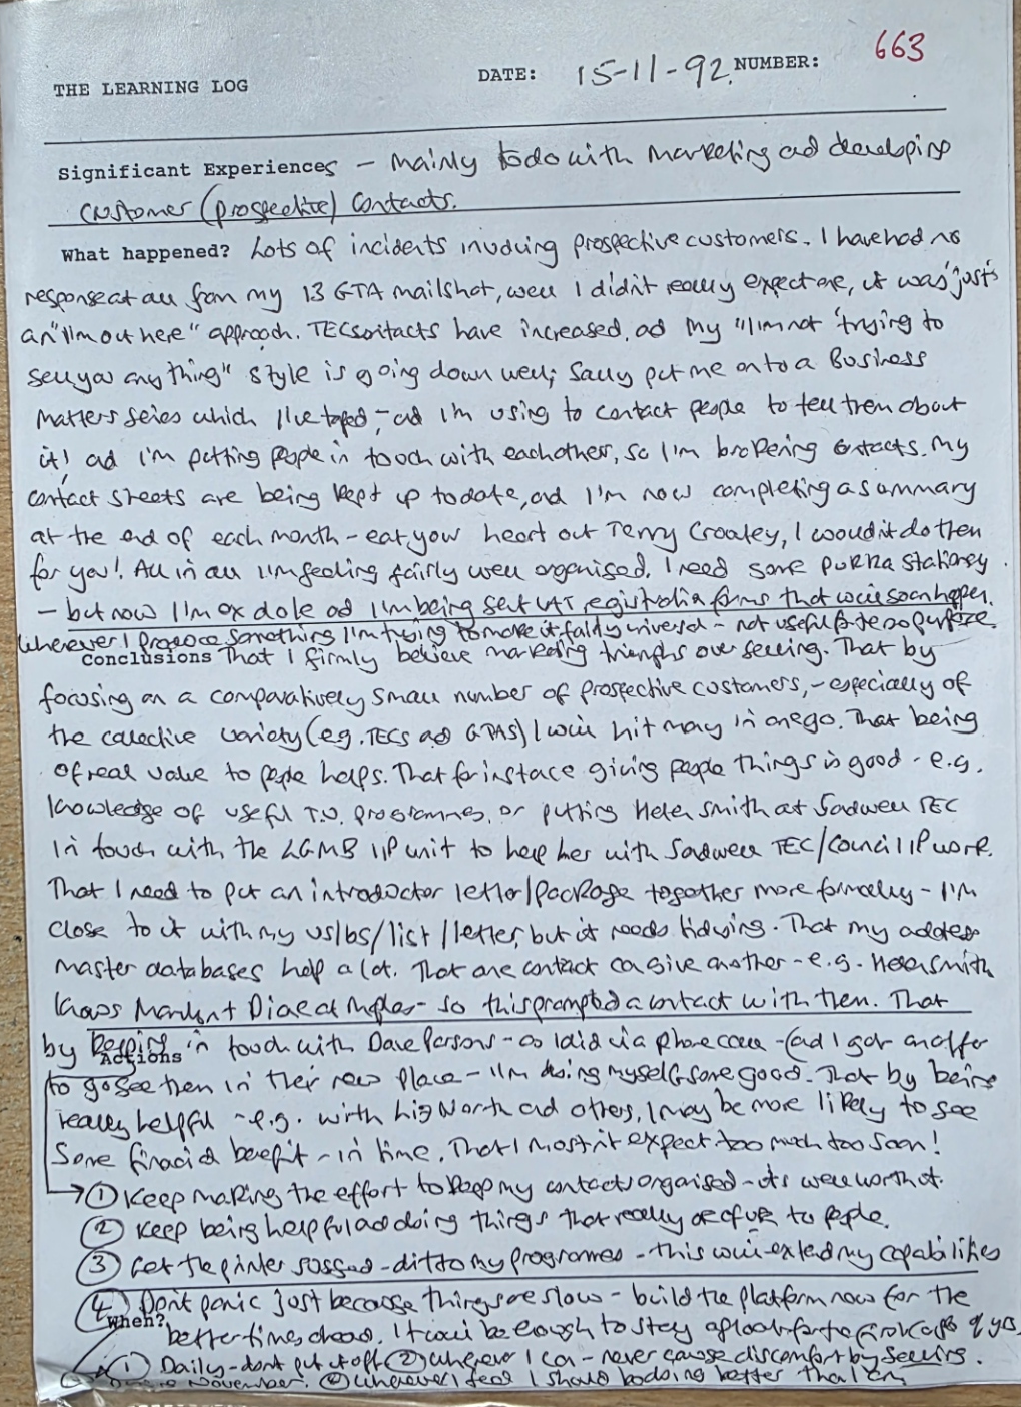 663
THE LEARNING LOG DATE: 15-11-92. NUMBER:
Significant Experiences - mainly to do with marketing and developing
customer (prospective) contacts.
What happened? Lots of incidents involving prospective customers. I have had no
response at all from my 13 GTA mailshot, well I didn't really expect one, it was 'just'
an "I'm out here" approach. TEC contacts have increased, ad my "I'm not 'trying to
sell you anything" style is going down well; Sally put me onto a Business
Matters series which I've taped - ad I'm using to contact people to tell them about
it! ad I'm putting people in touch with eachother, so I'm brokering contacts. My
contact sheets are being kept up to date, and I'm now completing a summary
at the end of each month - eat your heart out Terry Crowley, I wouldn't do them
for you! All in all I'm feeling fairly well organised. I need some stationery
- but now I'm ad I'm being sent VAT registration forms that will soon happen.
Whenever I produce something I'm trying to make it fairly universal - not useful for one purpose.
Conclusions That I firmly believe marketing triumphs over selling. That by
focusing on a comparatively small number of prospective customers, - especially of
the collective variety (e.g. TECs ad GTAS) I will hit many in one go. That being
of real value to people helps. That for instance giving people things is good - e.g.
knowledge of useful T.V. programmes, or putting Helen Smith at TEC
in touch with the LGMB IIP unit to help her with TEC/Council IIP work.
That I need to put an introductor letter/package together more formally - I'm
close to it with my /list/letter, but it needs tidying. That my address
master databases help a lot. That one contact can give another - e.g. Helen Smith
knows Diane at - so this prompted a contact with them. That
by keeping in touch with Dave Parsons - as I did via phone call - (ad I got an offer
Actions
to go see them in their new place - I'm doing myself some good. That by being
really helpful - e.g. with Liz North ad others, I may be more likely to see
some financial benefit - in time. That I mustn't expect too much too soon!
→ ① Keep making the effort to keep my contacts organised - it's well worth it.
② Keep being helpful ad doing things that really are of use to people.
③ Get the printer sussed - ditto my programmes - this will extend my capabilities
④ Don't panic just because things are slow - build the platform now for the
When?
better times ahead. It will be enough to stay afloat for the first of yrs.
① Daily - don't put it off ② Wherever I can - never cause discomfort by selling.
November. ④ Whenever I feel I should be doing better than I am